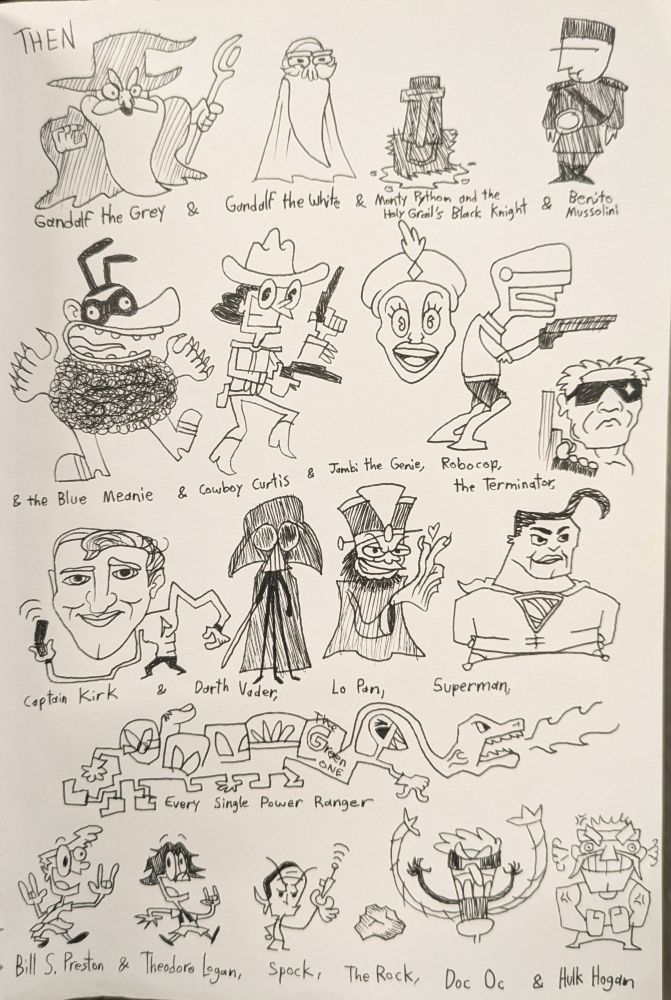 THEN
Gandalf the Grey & Gandalf the White & Monty Python and the
Holy Grail's Black Knight & Benito
Mussolini
& the Blue Meanie & Cowboy Curtis & Jambi the Genie, Robocop,
the Terminator,
Captain Kirk & Darth Vader, Lo Pan, Superman,
The
Green
ONE
Every Single Power Ranger
Bill S. Preston & Theodore Logan, Spock, The Rock, Doc Oc & Hulk Hogan